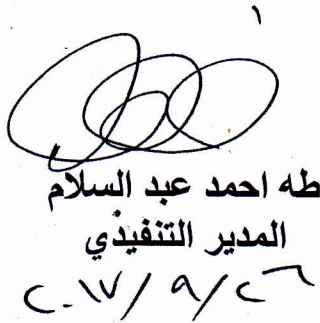 ١
طه احمد عبد السلام
المدير التنفيذي
٢٠١٧/٩/٢٦